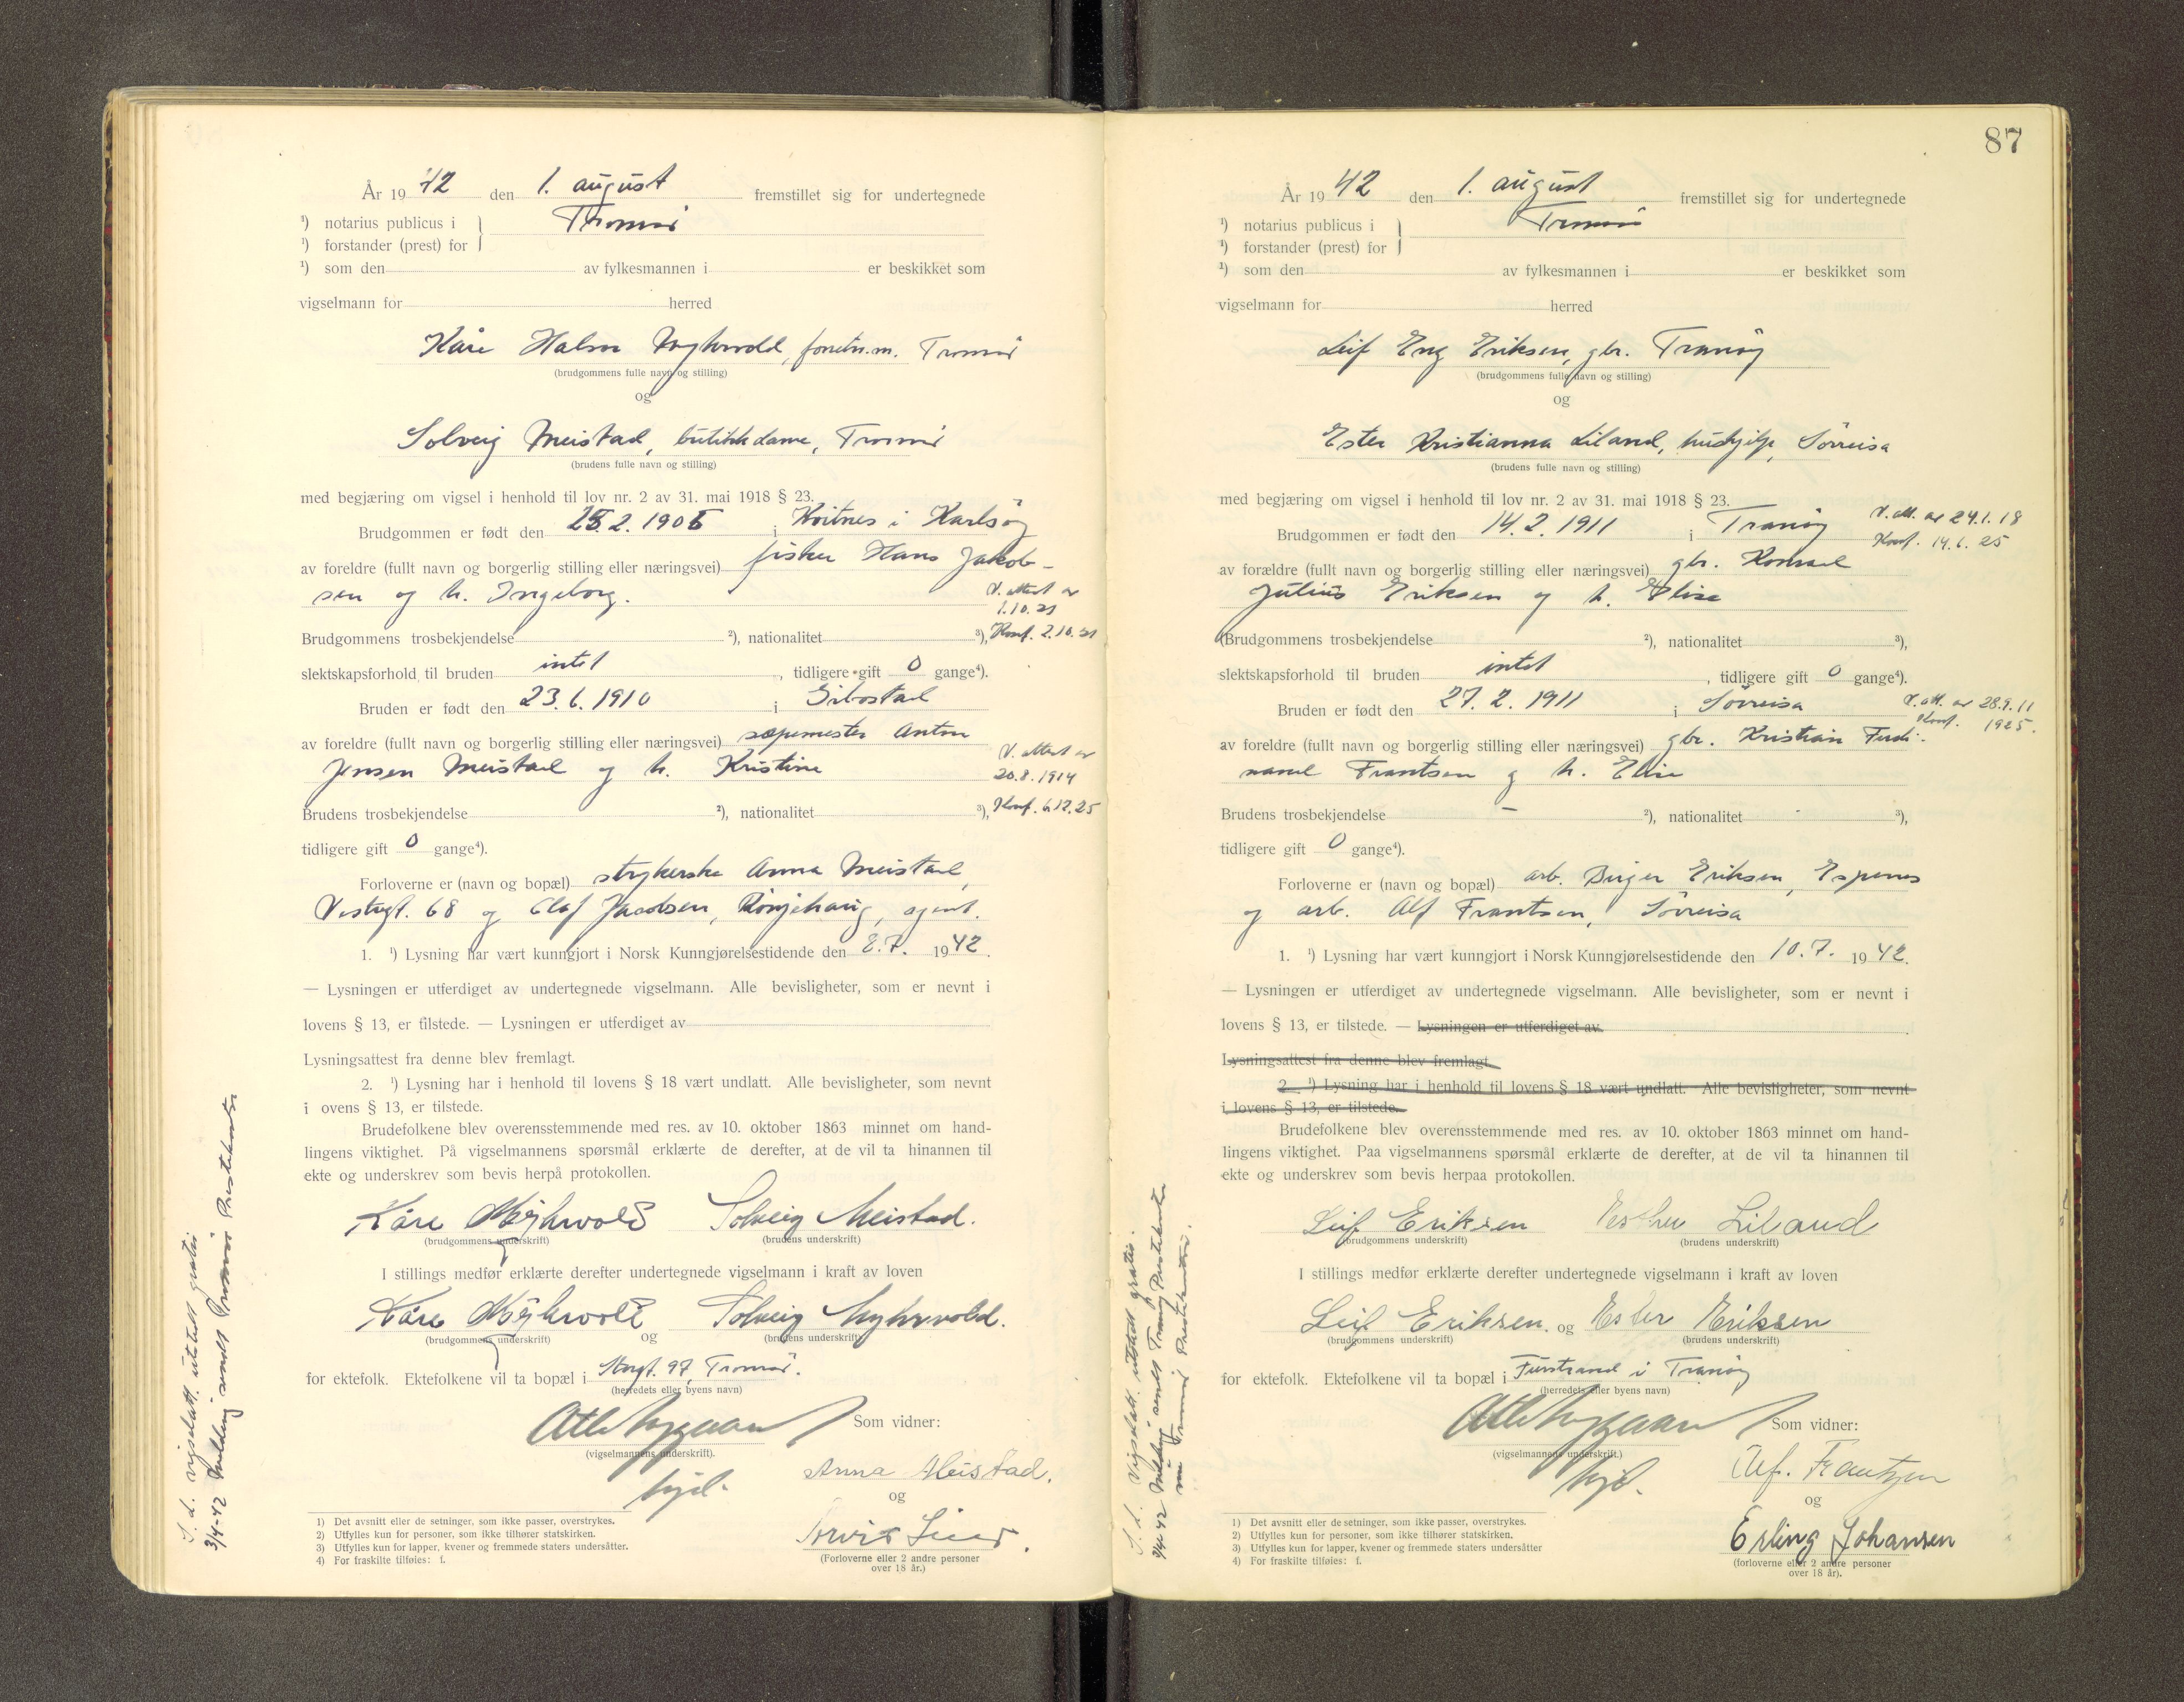 År 19 42 den 1. august fremstillet sig for undertegnede
¹) notarius publicus i Tromsö
¹) forstander (prest) for
¹) som den av fylkesmannen i er beskikket som
vigselmann for herred
Kåre Halvor Myhrvold, forretn.m. Tromsö
(brudgommens fulle navn og stilling)
og
Solveig Meistad, butikkdame, Tromsö
(brudens fulle navn og stilling)
med begjæring om vigsel i henhold til lov nr. 2 av 31. mai 1918 § 23.
Brudgommen er født den 2.190 i Kvitnes i Karlsöy
av foreldre (fullt navn og borgerlig stilling eller næringsvei) fisker Hans Jakob-
sen og h. Ingeborg.
V. attest av
1.10.21
Brudgommens trosbekjendelse ²), nationalitet ³), Konf. 2.10.21
slektskapsforhold til bruden intet, tidligere gift 0 gange⁴).
Bruden er født den 23.6.1910 i Gibostad
av foreldre (fullt navn og borgerlig stilling eller næringsvei) sæpemester Anton
Jensen Meistad og h. Kristine
V. attest av
20.8.1914
Brudens trosbekjendelse ²), nationalitet ³), Konf. 6.12.25
tidligere gift 0 gange⁴).
Forloverne er (navn og bopæl) strykerske Anna Meistad,
Vestregt. 68 og Olaf Jacobsen, agent.
1. ¹) Lysning har vært kunngjort i Norsk Kunngjørelsestidende den 8.7. 1942.
— Lysningen er utferdiget av undertegnede vigselmann. Alle bevisligheter, som er nevnt i
lovens § 13, er tilstede. — Lysningen er utferdiget av
Lysningsattest fra denne blev fremlagt.
2. ¹) Lysning har i henhold til lovens § 18 vært undlatt. Alle bevisligheter, som nevnt
i ovens § 13, er tilstede.
Brudefolkene blev overensstemmende med res. av 10. oktober 1863 minnet om hand-
lingens viktighet. På vigselmannens spørsmål erklærte de derefter, at de vil ta hinannen til
ekte og underskrev som bevis herpå protokollen.
Kåre Myhrvold Solveig Meistad.
(brudgommens underskrift) (brudens underskrift)
I stillings medfør erklærte derefter undertegnede vigselmann i kraft av loven
Kåre Myhrvold og Solveig Myhrvold.
(brudgommens underskrift) (brudens underskrift)
for ektefolk. Ektefolkene vil ta bopæl i Storgt. 97, Tromsö.
(herredets eller byens navn)
Som vidner:
(vigselmannens underskrift).
Anna Meistad.
og
(Forloverne eller 2 andre personer
over 18 år.)
1) Det avsnitt eller de setninger, som ikke passer, overstrykes.
2) Utfylles kun for personer, som ikke tilhører statskirken.
3) Utfylles kun for lapper, kvener og fremmede staters undersåtter.
4) For fraskilte tilføies: f.
S. d. vigselatt. utstedt gratis
3/4-42 Melding sendt Tromsö Prestekontor
87
År 19 42 den 1. august fremstillet sig for undertegnede
¹) notarius publicus i Tromsö
¹) forstander (prest) for
¹) som den av fylkesmannen i er beskikket som
vigselmann for herred
Leif Eng Eriksen, gbr. Tranöy
(brudgommens fulle navn og stilling)
og
Ester Kristianna Liland, hushjelp, Sörreisa
(brudens fulle navn og stilling)
med begjæring om vigsel i henhold til lov nr. 2 av 31. mai 1918 § 23.
Brudgommen er født den 14.2.1911 i Tranöy
V. att. av 24.1.18
Konf. 14.6.25
av forældre (fullt navn og borgerlig stilling eller næringsvei) gbr. Konrad
Julius Eriksen og h. Elise
(Brudgommens trosbekjendelse ²), nationalitet ³),
slektskapsforhold til bruden intet, tidligere gift 0 gange⁴).
Bruden er født den 27.2.1911 i Sörreisa
V. att. av 28.9.11
Konf. 1925.
av foreldre (fullt navn og borgerlig stilling eller næringsvei) gbr. Kristian Ferdi-
nand Frantsen og h. Elise
Brudens trosbekjendelse – ²), nationalitet ³),
tidligere gift 0 gange⁴).
Forloverne er (navn og bopæl) arb. Birger Eriksen, Espenes
og arb. Alf Frantsen, Sörreisa
1. ¹) Lysning har vært kunngjort i Norsk Kunngjørelsestidende den 10.7. 1942.
— Lysningen er utferdiget av undertegnede vigselmann. Alle bevisligheter, som er nevnt i
lovens § 13, er tilstede. — Lysningen er utferdiget av
Lysningsattest fra denne blev fremlagt.
2. ¹) Lysning har i henhold til lovens § 18 vært undlatt. Alle bevisligheter, som nevnt
i lovens § 13, er tilstede.
Brudefolkene blev overensstemmende med res. av 10. oktober 1863 minnet om hand-
lingens viktighet. Paa vigselmannens spørsmål erklærte de derefter, at de vil ta hinannen til
ekte og underskrev som bevis herpaa protokollen.
Leif Eriksen Esther Liland
(brudgommens underskrift) (brudens underskrift)
I stillings medfør erklærte derefter undertegnede vigselmann i kraft av loven
Leif Eriksen. og Ester Eriksen
(brudgommens underskrift) (brudens underskrift)
for ektefolk. Ektefolkene vil ta bopæl i i Tranöy
(herredets eller byens navn)
Som vidner:
(vigselmannens underskrift.)
Alf. Frantzen
og
Erling Johansen
(forloverne eller 2 andre personer
over 18 år).
1) Det avsnitt eller de setninger, som ikke passer, overstrykes.
2) Utfylles kun for personer, som ikke tilhører statskirken.
3) Utfylles kun for lapper, kvener og fremmede staters undersåtter
4) For fraskilte tilføies: f.
S. d. Vigselatt. utstedt gratis.
Melding sendt Tranöy Prestekontor
Tromsö Prestekontor.